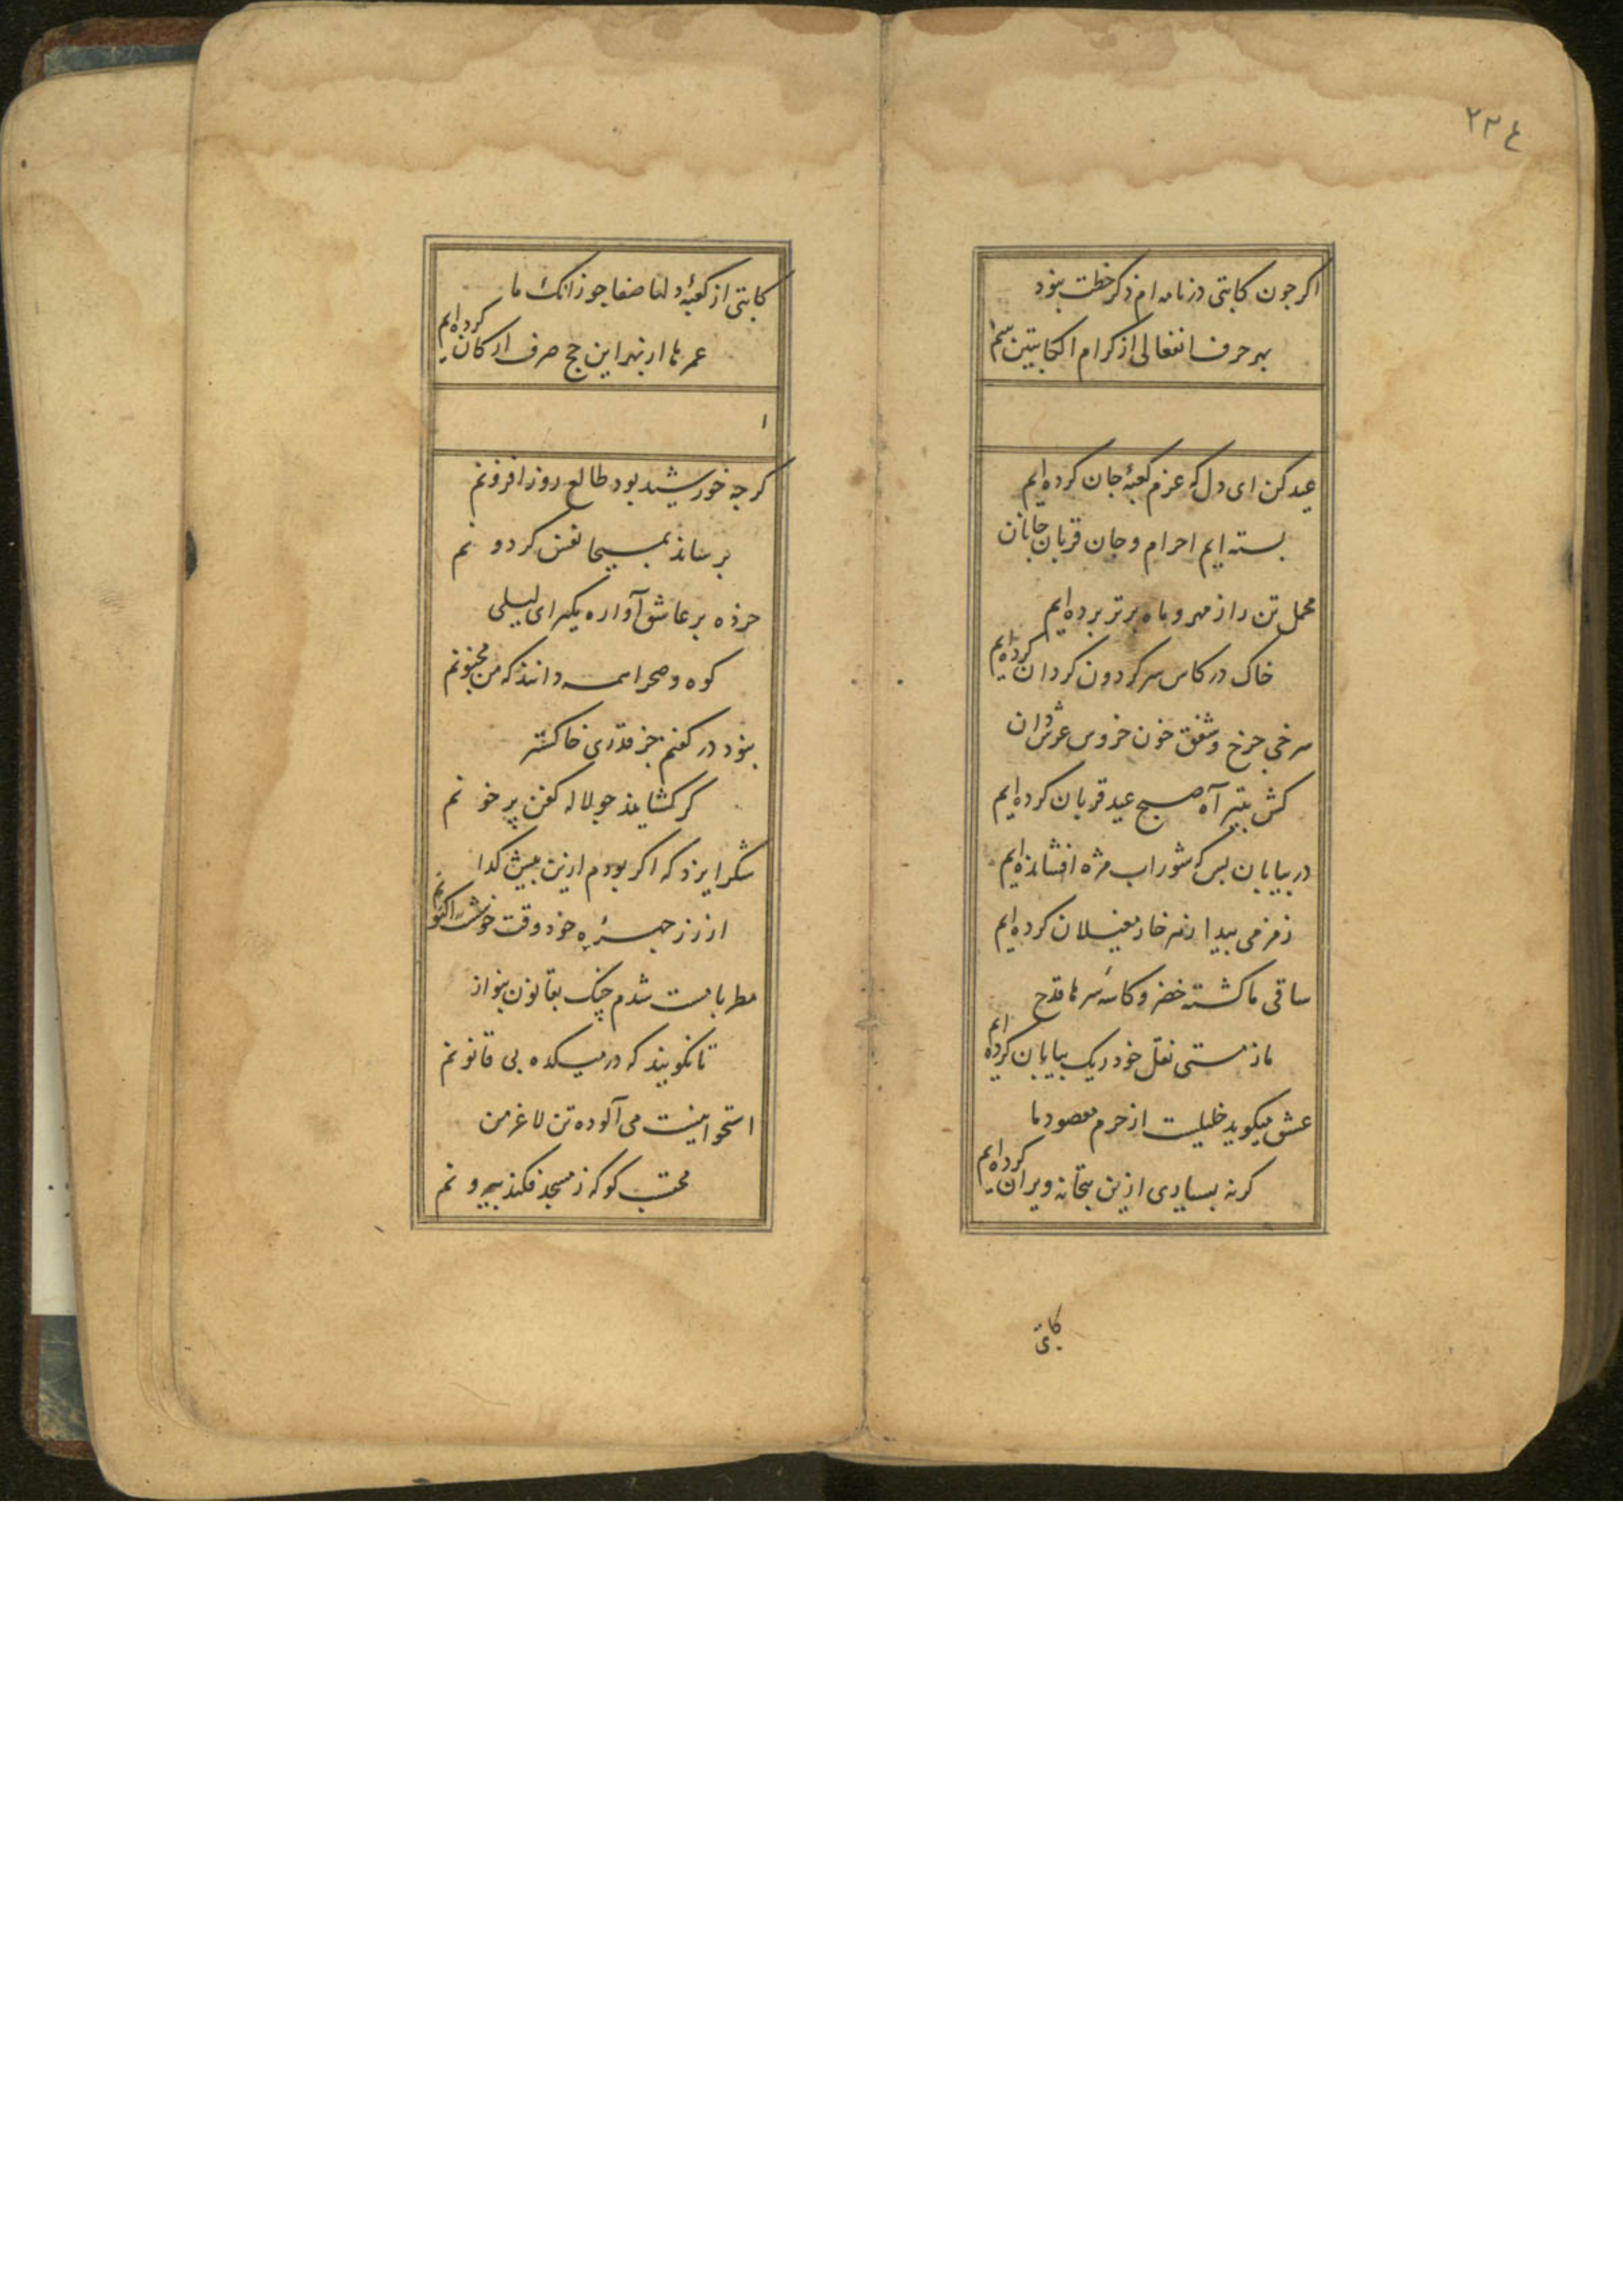 ٢٢٤
اکر جون کاتبی در نامه ام ذکر خطت نبود
بهر حرف انفعالی از کرام الکاتبین
عید کن ای دل که عزم کعبۀ جان کرده ایم
بسته ایم احرام و جان قربان جانان
محمل تن را ز مهر و ماه برتر برده ایم
خاک در کاس سر کردون کردان کرده ایم
سرخی جرخ و شفق خون خروس عرش دان
کش بتیر آه صبح عید قربان کرده ایم
در بیابان بس که شوراب مژه افشانده ایم
زمزمی پیدا ز هر خار مغیلان کرده ایم
ساقی ما کشته خضر و کاسۀ سر ها قدح
ما ز مستی نقل خود ریک بیابان کرده ایم
عشق میکوید خلیلست از حرم مقصود ما
کرنه بسیاری ازین بتخانه ویران کرده ایم
کاتبی
کاتبی از کعبۀ دلها صفا جو زانک ما
عمر ها از بهر این حج صرف ارکان کرده ایم
کرجه خورشید بود طالع روز افزونم
برساند بمسیحا نفس کردونم
خرده بر عاشق آواره مکیر ای لیلی
کوه و صحرا همه دانند که من مجنونم
نبود در کفنم جز قدری خاکستر
کر کشایند جو لاله کفن پر خونم
شکر ایزد که اکر بودم ازین پیش کدا
از زر جهرۀ خود وقت خوشست اکنونم
مطربا مست شدم چنک بقانون بنواز
تا نکویند که در میکده بی قانونم
استخوانیست می آلوده تن لاغر من
محتسب کو که ز مسجد فکند بیرونم